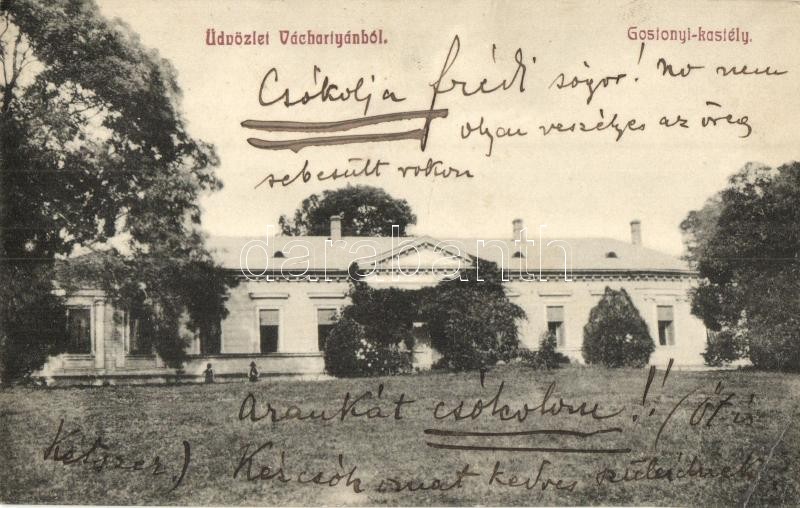 Üdvözlet Váchartyánból.
Gostonyi-kastély.
Csókolja frédi sógor! No nem
olyan veszélyes az öreg
sebesült rokon
darabanth.com
Arankát csókolom!! (Őt is
Kétszer) Kézcsókomat kedves szüleidnek.